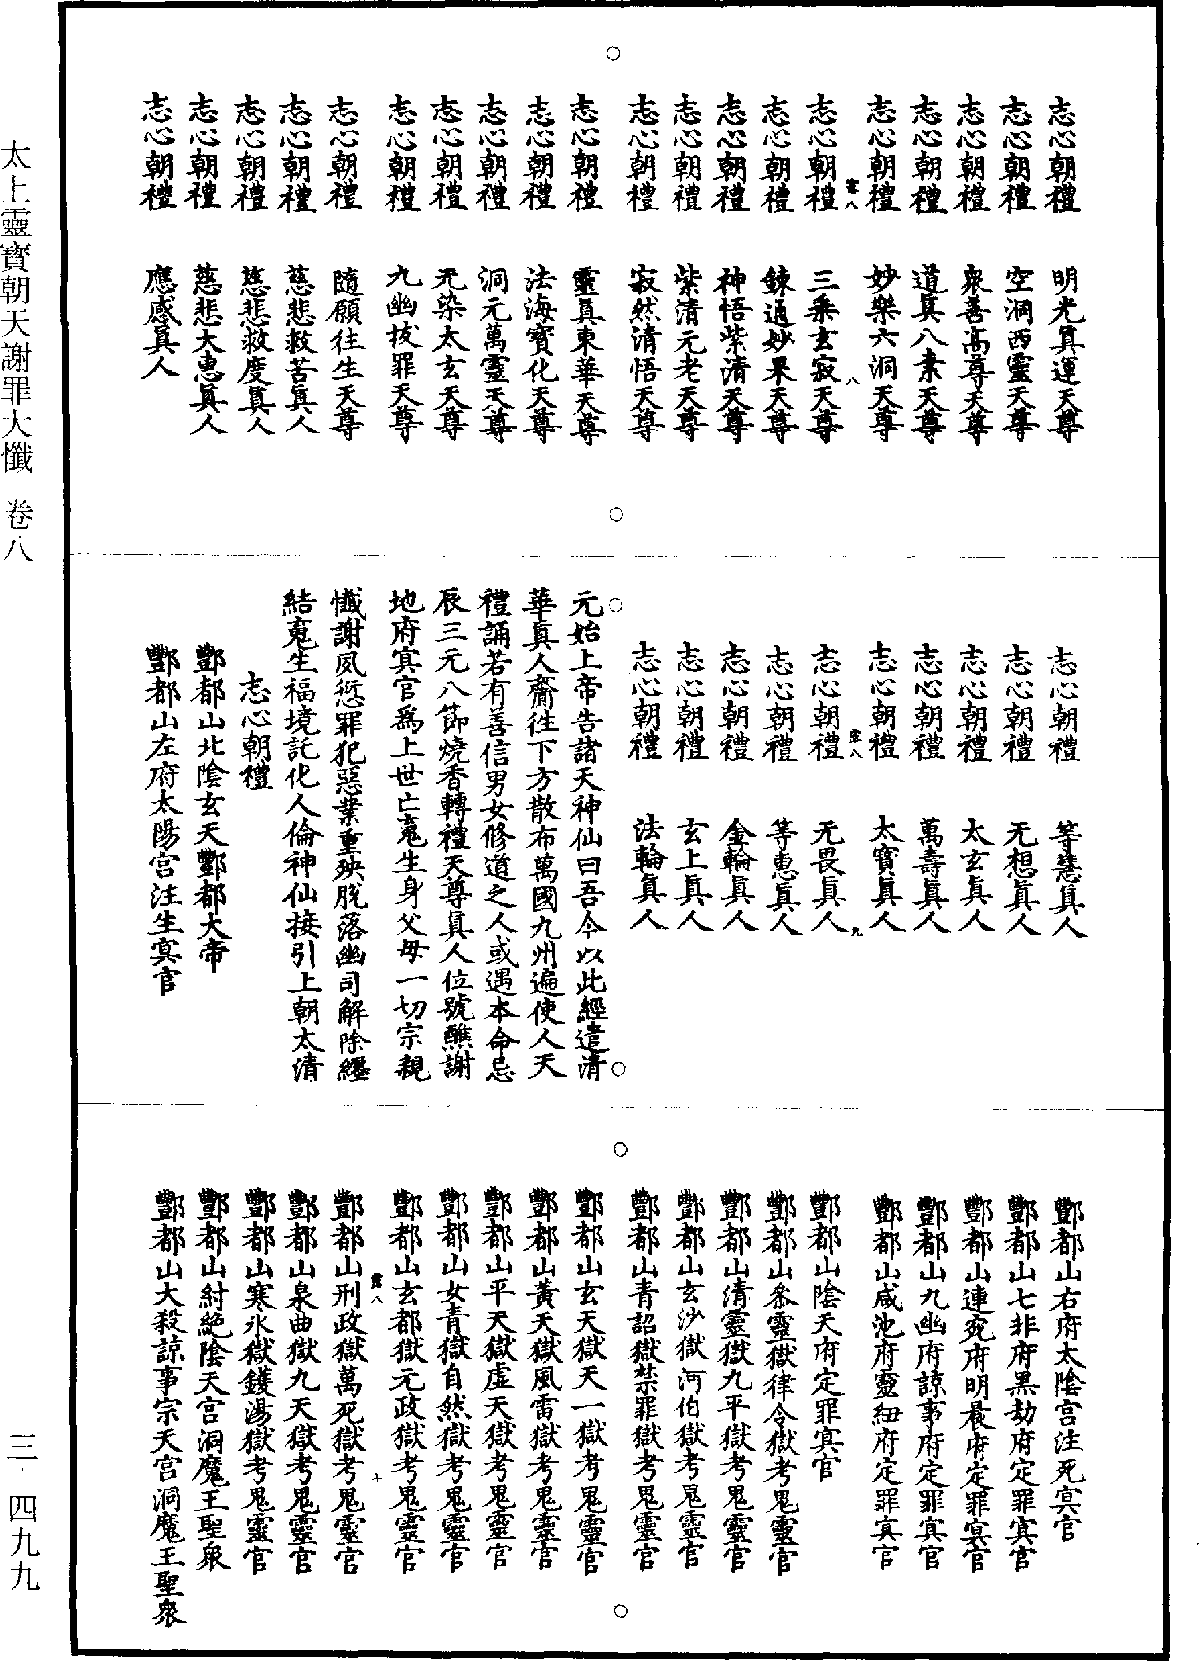 太上靈寶朝天謝罪大懺　卷八
志心朝禮　明光真運天尊
志心朝禮　空洞西靈天尊
志心朝禮　衆善高尊天尊
志心朝禮　道真八素天尊
志心朝禮　妙樂六洞天尊
志心朝禮　三乘玄寂天尊
志心朝禮　鍊通妙果天尊
志心朝禮　神悟紫清天尊
志心朝禮　紫清元老天尊
志心朝禮　寂然清悟天尊
志心朝禮　靈真東華天尊
志心朝禮　法海寶化天尊
志心朝禮　洞元萬靈天尊
志心朝禮　无染太玄天尊
志心朝禮　九幽拔罪天尊
志心朝禮　隨願往生天尊
志心朝禮　慈悲救苦真人
志心朝禮　慈悲救度真人
志心朝禮　慈悲大惠真人
志心朝禮　應感真人
志心朝禮　等慈真人
志心朝禮　无想真人
志心朝禮　太玄真人
志心朝禮　萬壽真人
志心朝禮　太寶真人
志心朝禮　无畏真人
志心朝禮　等惠真人
志心朝禮　金輪真人
志心朝禮　玄上真人
志心朝禮　法輪真人
元始上帝告諸天神仙曰吾今以此經遣清
華真人齋往下方散布萬國九州遍使人天
禮誦若有善信男女修道之人或遇本命忌
辰三元八節燒香轉禮天尊真人位號醮謝
地府冥官爲上世亡䰟生身父母一切宗親
懺謝夙愆罪犯惡業重殃脫落幽司解除纒
結䰟生福境託化人倫神仙接引上朝太清
志心朝禮
酆都山北陰玄天酆都大帝
酆都山左府太陽宮注生冥官
酆都山右府太陰宮注死冥官
酆都山七非府黑劫府定罪冥官
酆都山連宛府明晨府定罪冥官
酆都山九幽府諒事府定罪冥官
酆都山咸池府靈紐府定罪冥官
酆都山陰天府定罪冥官
酆都山叅靈獄律令獄考鬼靈官
酆都山清靈獄九平獄考鬼靈官
酆都山玄沙獄河伯獄考鬼靈官
酆都山青詔獄禁罪獄考鬼靈官
酆都山玄天獄天一獄考鬼靈官
酆都山黃天獄風雷獄考鬼靈官
酆都山平天獄虛天獄考鬼靈官
酆都山女青獄自然獄考鬼靈官
酆都山玄都獄元政獄考鬼靈官
酆都山刑政獄萬死獄考鬼靈官
酆都山泉曲獄九天獄考鬼靈官
酆都山寒氷獄鑊湯獄考鬼靈官
酆都山紂絕陰天宮洞魔王聖衆
酆都山大殺諒事宗天宮洞魔王聖衆
三·四九九